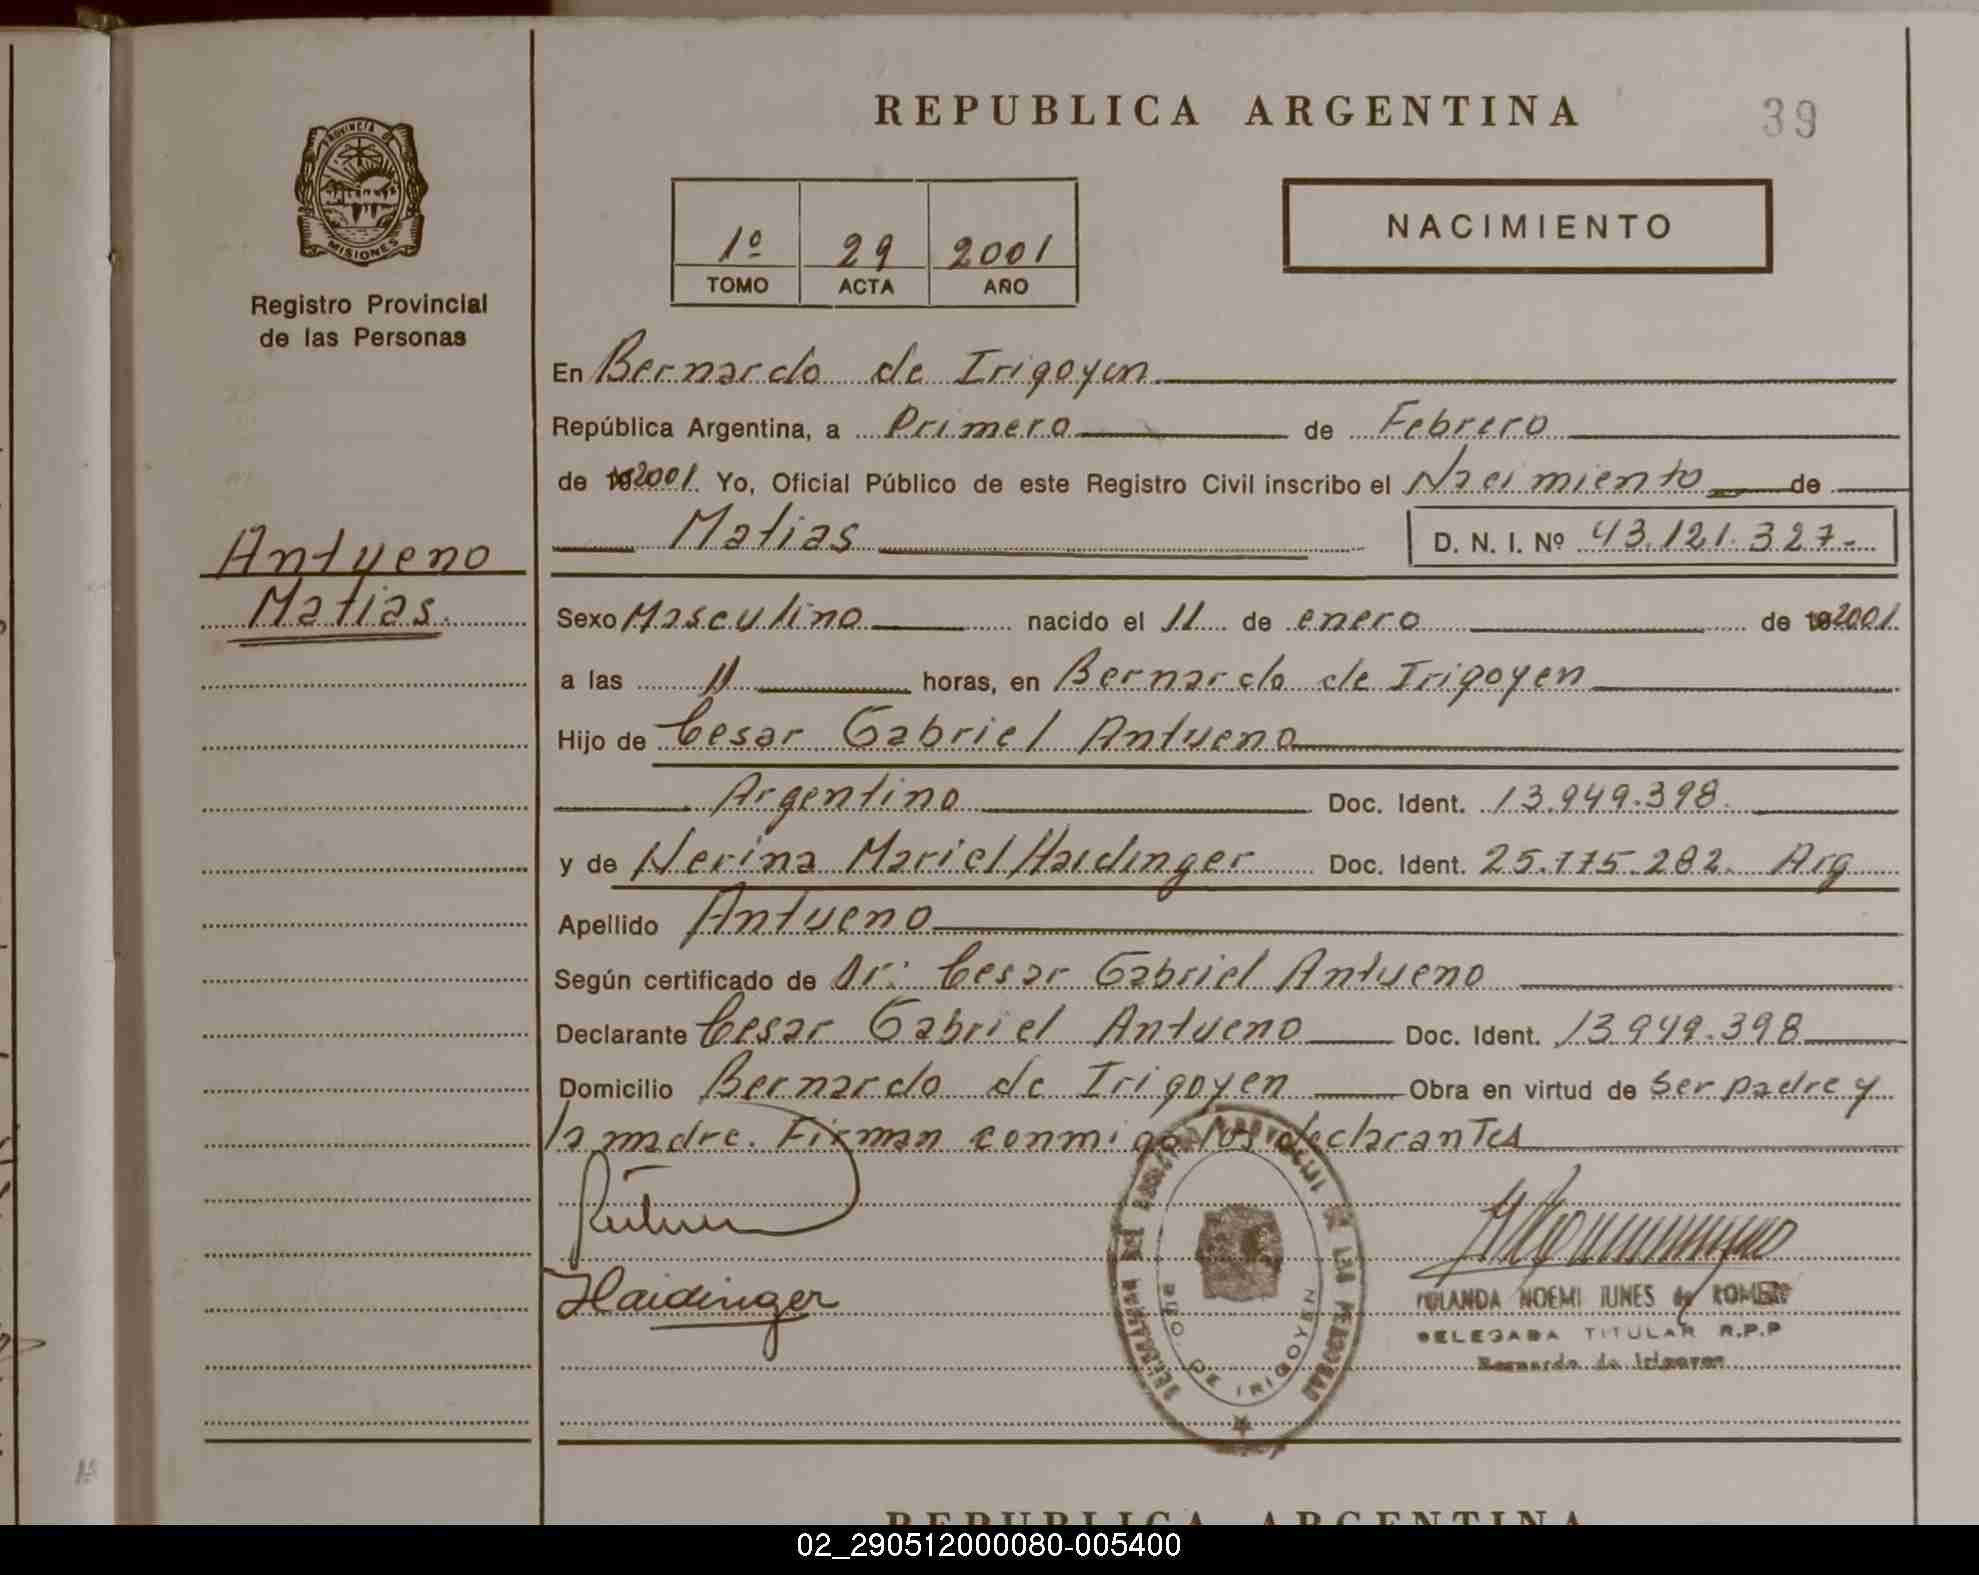 REPUBLICA ARGENTINA
39
PROVINCIA DE
MISIONES
Registro Provincial
de las Personas
1º 29 2001
TOMO ACTA AÑO
NACIMIENTO
En Bernardo de Irigoyen
República Argentina, a Primero de Febrero
de 19 2001. Yo, Oficial Público de este Registro Civil inscribo el Nacimiento de
Matias D. N. I. Nº 43.121.327-
Antueno
Matias.
Sexo Masculino nacido el 11 de enero de 19 2001.
a las 11 horas, en Bernardo de Irigoyen
Hijo de Cesar Gabriel Antueno
Argentino Doc. Ident. 13.949.398.
y de Nerina Mariel Haidinger Doc. Ident. 25.175.282. Arg
Apellido Antueno
Según certificado de Dr: Cesar Gabriel Antueno
Declarante Cesar Gabriel Antueno Doc. Ident. 13.949.398
Domicilio Bernardo de Irigoyen Obra en virtud de ser padre y
la madre. Firman conmigo los declarantes
Haidinger
BDO. DE IRIGOYEN
YOLANDA NOEMI IUNES de ROMERO
DELEGADA TITULAR R.P.P
Bernardo de Irigoyen
REPUBLICA ARGENTINA
02_290512000080-005400